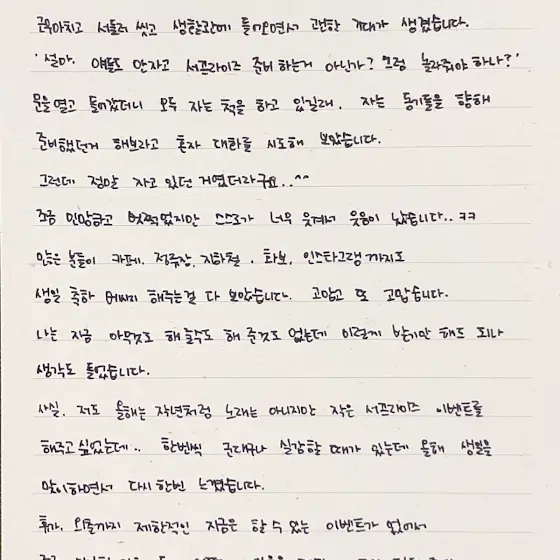 근무마치고 서둘러 씻고 생활관에 들어오면서 괜한 기대가 생겼습니다.
'설마. 얘들도 안자고 서프라이즈 준비하는거 아닌가? 그럼 놀라줘야 하나?'
문을 열고 들어갔더니 모두 자는 척을 하고 있길래. 자는 동기들을 향해
준비했던거 해보라고 혼자 대화를 시도해 보았습니다.
그런데 정말 자고 있던 거였더라구요..^^
조금 민망하고 머쩍었지만 스스로가 너무 웃겨서 웃음이 났습니다.. ㅋㅋ
많은 분들이 카페, 정류장, 지하철, 화보, 인스타그램까지도
생일 축하 메세지 해주는걸 다 보았습니다. 고맙고 또 고맙습니다.
나는 지금 아무것도 해줄수도 해 준것도 없는데 이렇게 받기만 해도 되나
생각도 들었습니다.
사실. 저도 올해는 작년처럼 노래는 아니지만 작은 서프라이즈 이벤트를
해주고 싶었는데.. 한번씩 군대구나 실감할 때가 있는데 올해 생일을
맞이하면서 다시 한번 느꼈습니다.
휴가, 외출까지 제한적인 지금은 할 수 있는 이벤트가 없어서